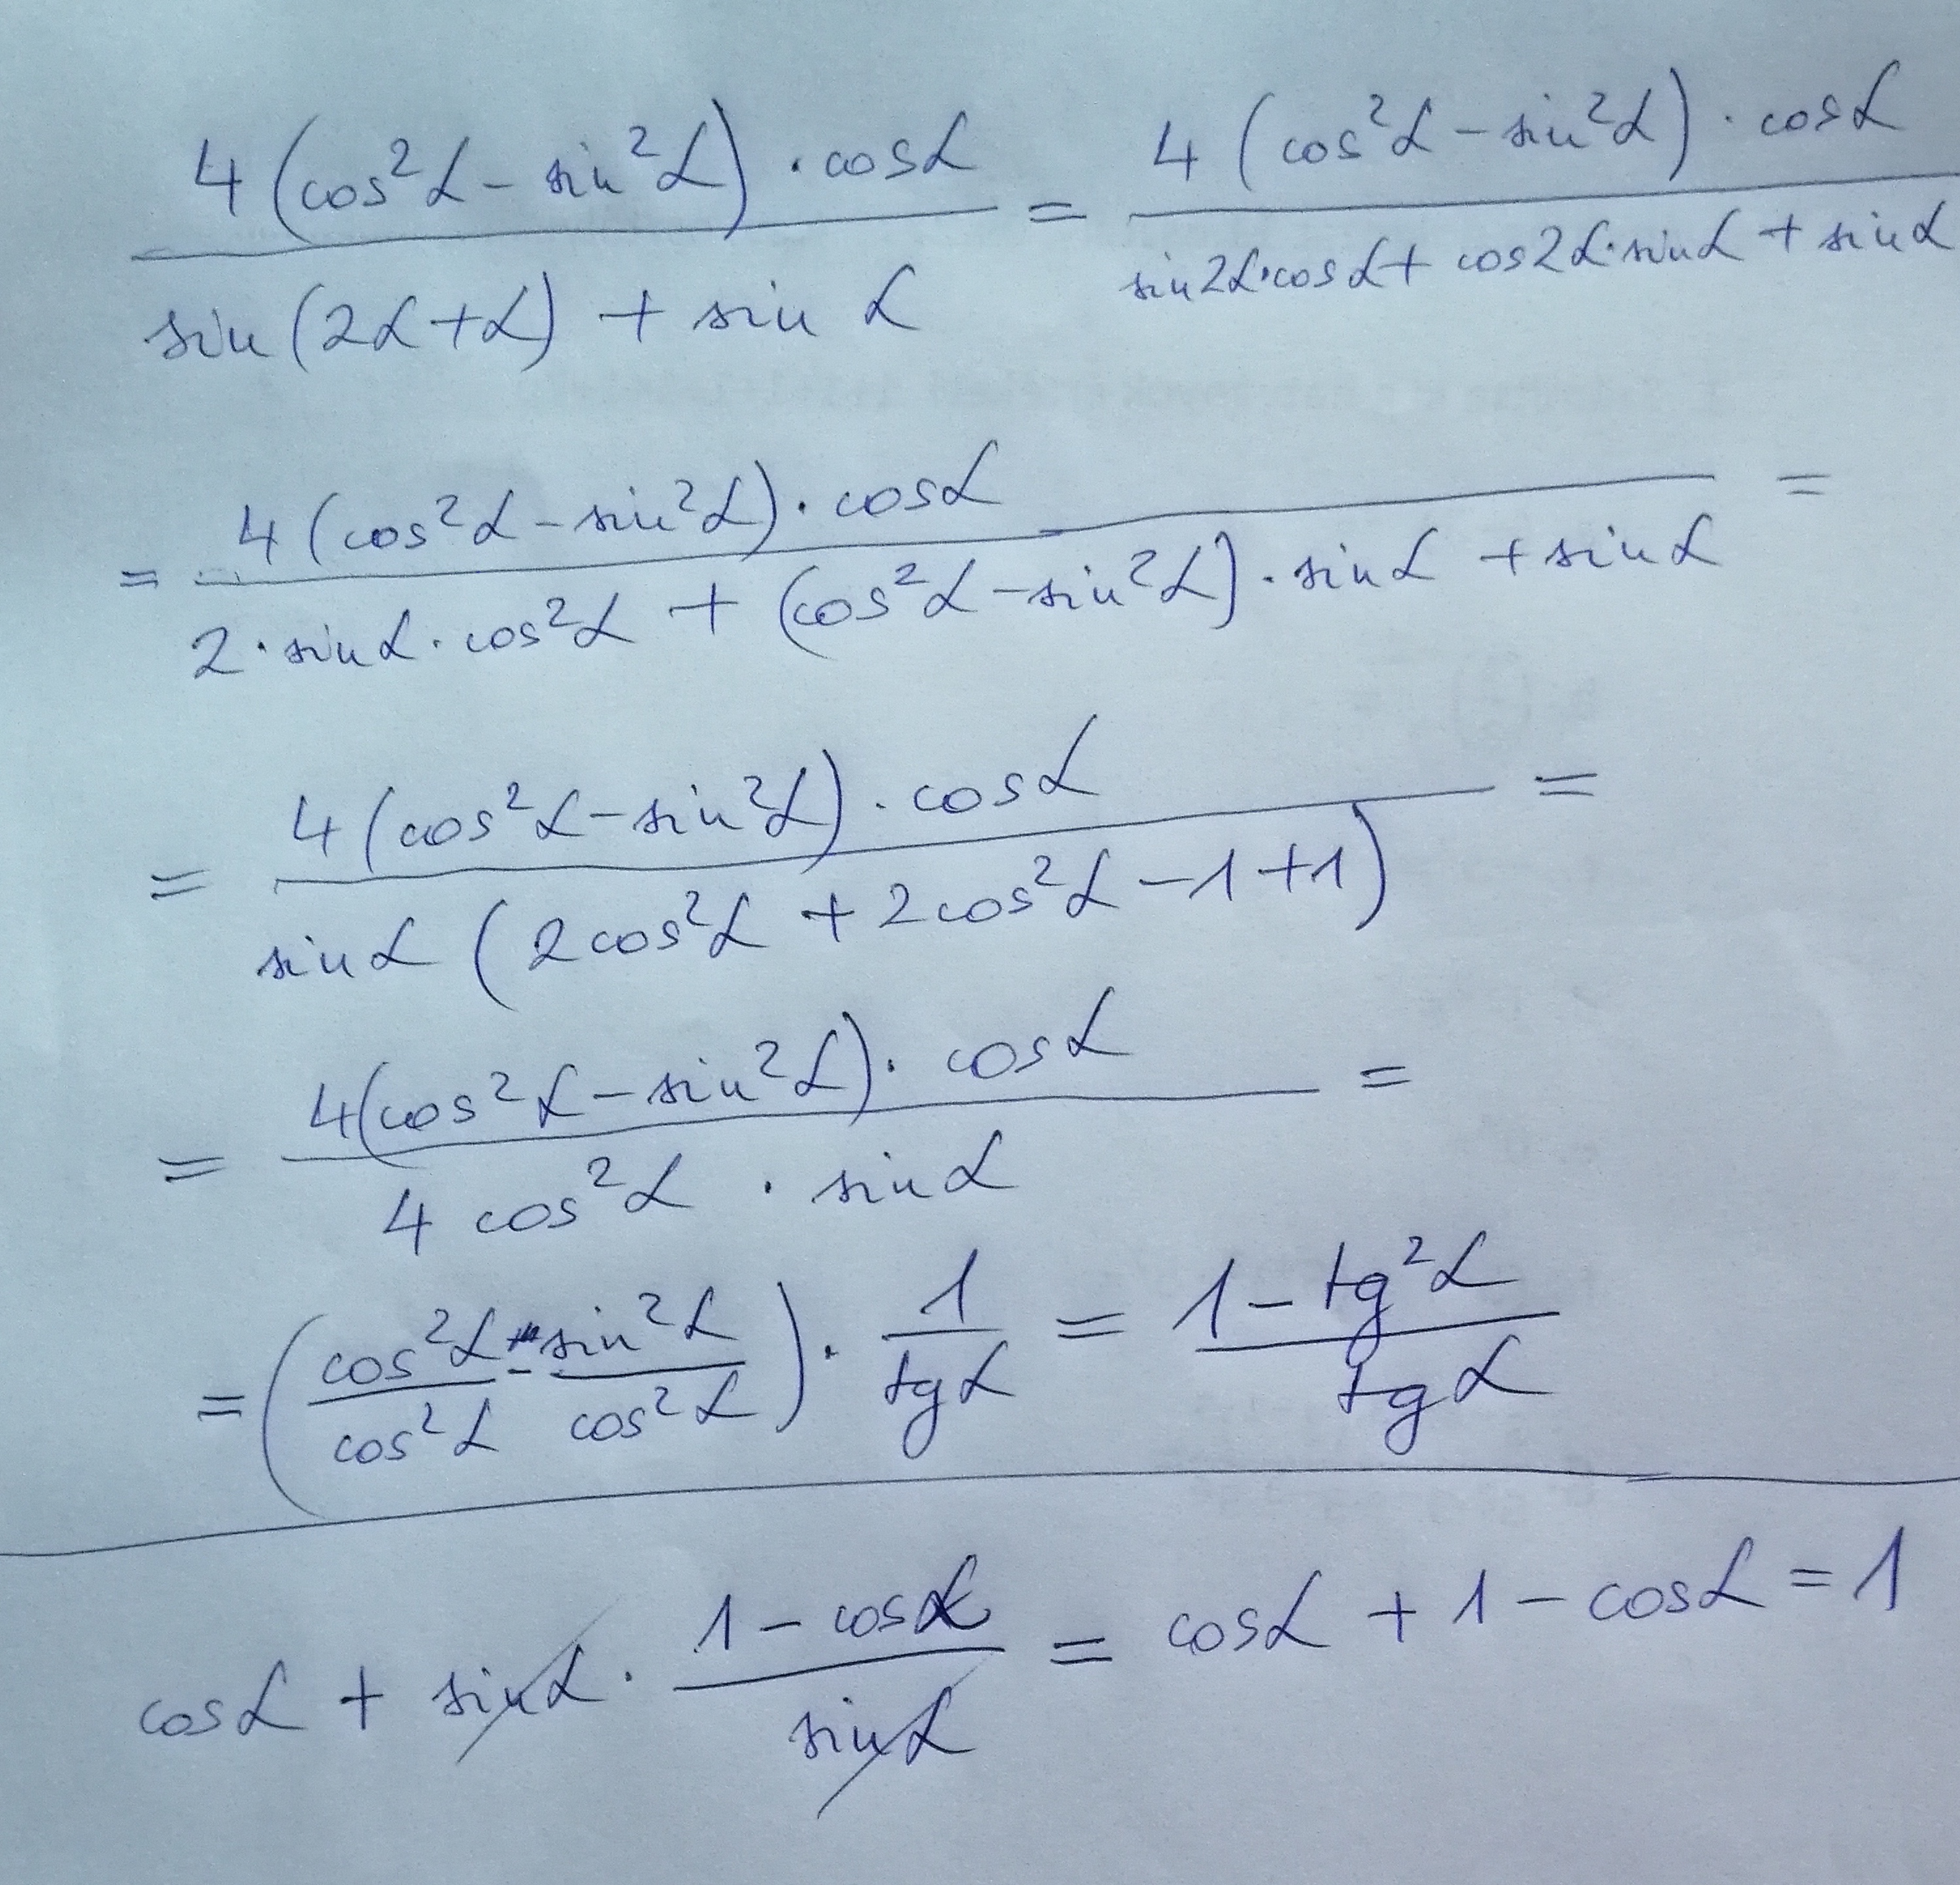 4(cos²α - sin²α) · cosα / sin(2α+α) + sin α = 4(cos²α - sin²α) · cosα / sin2α·cosα + cos2α·sinα + sinα
= 4(cos²α - sin²α) · cosα / 2·sinα·cos²α + (cos²α - sin²α)·sinα + sinα =
= 4(cos²α - sin²α) · cosα / sinα (2cos²α + 2cos²α - 1 + 1) =
= 4(cos²α - sin²α) · cosα / 4 cos²α · sinα =
= (cos²α / cos²α - sin²α / cos²α) · 1 / tgα = 1 - tg²α / tgα
cosα + sinα · 1 - cosα / sinα = cosα + 1 - cosα = 1